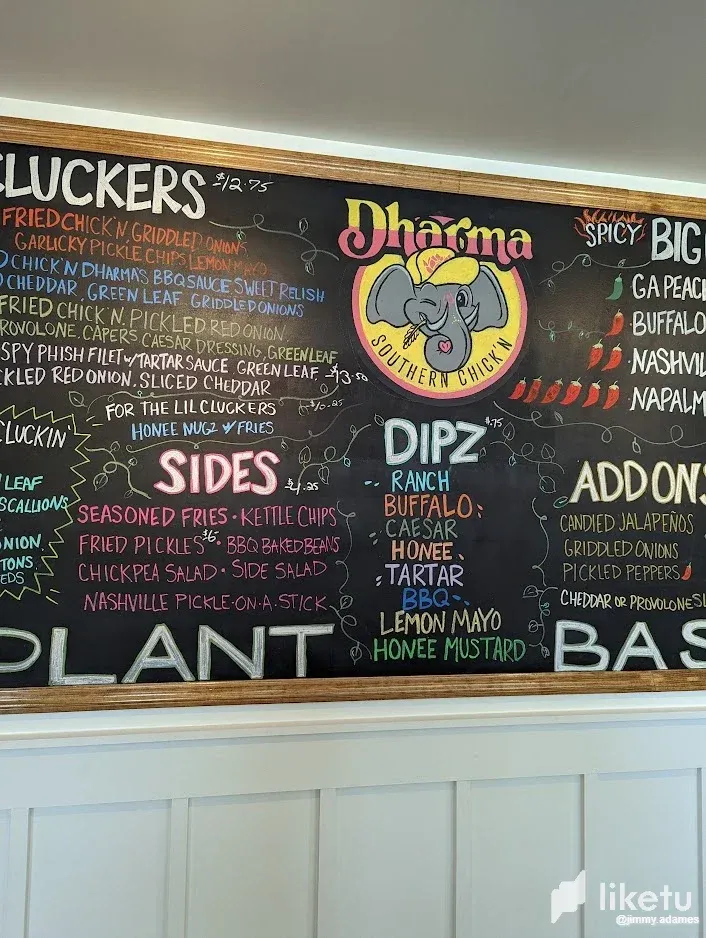 CLUCKERS $12.75
FRIED CHICK'N, GRIDDLED ONIONS
GARLICKY PICKLE CHIPS LEMON MAYO
CHICK'N DHARMA'S BBQ SAUCE SWEET RELISH
CHEDDAR, GREEN LEAF, GRIDDLED ONIONS
FRIED CHICK'N, PICKLED RED ONION
PROVOLONE, CAPERS CAESAR DRESSING, GREEN LEAF
SPY PHISH FILET w/TARTAR SAUCE GREEN LEAF, $13.50
CKLED RED ONION, SLICED CHEDDAR
FOR THE LIL CLUCKERS
HONEE NUGZ w FRIES
CLUCKIN'
LEAF
SCALLIONS
ONION
TONS
EEDS
SIDES $4.25
SEASONED FRIES · KETTLE CHIPS
FRIED PICKLES $6 · BBQ BAKED BEANS
CHICKPEA SALAD · SIDE SALAD
NASHVILLE PICKLE-ON-A-STICK
PLANT
Dharma
SOUTHERN CHICK'N
DIPZ $.75
RANCH
BUFFALO
CAESAR
HONEE
TARTAR
BBQ
LEMON MAYO
HONEE MUSTARD
SPICY BIG
GA PEACH
BUFFALO
NASHVIL
NAPALM
ADD ONS
CANDIED JALAPEÑOS
GRIDDLED ONIONS
PICKLED PEPPERS
CHEDDAR OR PROVOLONE SL
BAS
liketu
@jimmy.adames